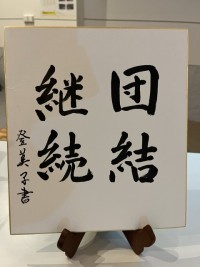 団結
継続
登美子書